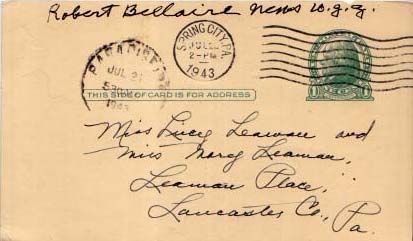 Robert Bellaire News
SPRING CITY, PA.
JUL
2-PM
1943
PARADISE
JUL 21
1943
THIS SIDE OF CARD IS FOR ADDRESS
Miss Lucy Leaman and
Miss Mary Leaman,
Leaman Place,
Lancaster Co.,
Pa.